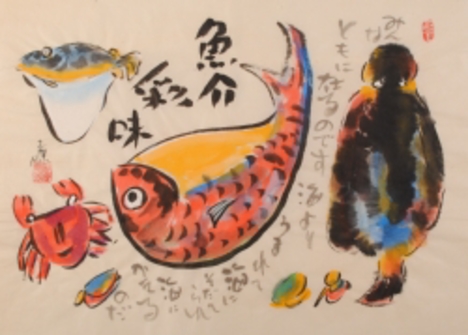 魚介
彩
味
みんな
ともに在るのです
海よと
うまれて
海に
そだてられ
海に
かえる
のだ